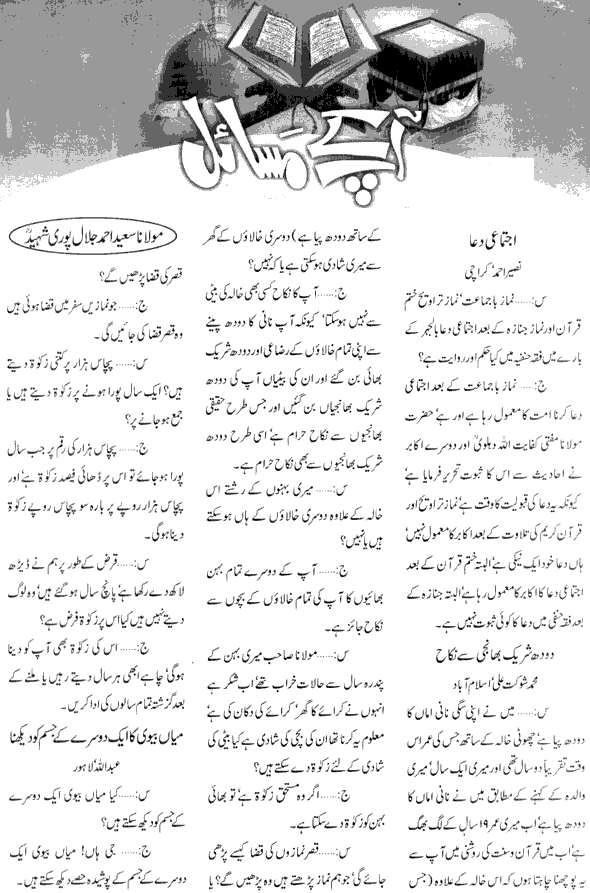 آپ کے مسائل
مولانا سعید احمد جلال پوری شہیدؒ
اجتماعی دعا
نصیر احمد، کراچی
س:...... نماز باجماعت، نماز تراویح، ختم
قرآن اور نماز جنازہ کے بعد اجتماعی دعا بالجہر کے
بارے میں فقہ حنفیہ میں کیا حکم اور روایت ہے؟
ج:...... نماز باجماعت کے بعد اجتماعی
دعا کرنا امت کا معمول رہا ہے اور ہے، حضرت
مولانا مفتی کفایت اللہ دہلویؒ اور دوسرے اکابر
نے احادیث سے اس کا ثبوت تحریر فرمایا ہے،
کیونکہ یہ دعا کی قبولیت کا وقت ہے، نماز تراویح اور
قرآن کریم کی تلاوت کے بعد اکابر کا معمول نہیں،
ہاں دعا خود ایک نیکی ہے، البتہ ختم قرآن کے بعد
اجتماعی دعا کا اکابر کا معمول رہا ہے، البتہ جنازہ کے
بعد فقہ حنفی میں دعا کا کوئی ثبوت نہیں ہے۔
دودھ شریک بھانجی سے نکاح
محمد شوکت علی، اسلام آباد
س:...... میں نے اپنی سگی نانی اماں کا
دودھ پیا ہے، چھوٹی خالہ کے ساتھ جس کی عمر اس
وقت تقریباً دو سال تھی اور میری ایک سال، میری
والدہ کے کہنے کے مطابق میں نے نانی اماں کا
دودھ پیا ہے، اب میری عمر ۱۹ سال کے لگ بھگ
ہے، اب میں قرآن وسنت کی روشنی میں آپ سے
یہ پوچھنا چاہتا ہوں کہ اس خالہ کے علاوہ (جس
کے ساتھ دودھ پیا ہے) دوسری خالاؤں کے گھر
سے میری شادی ہوسکتی ہے یا کہ نہیں؟
ج:...... آپ کا نکاح کسی بھی خالہ کی بیٹی
سے نہیں ہوسکتا، کیونکہ آپ نانی کا دودھ پینے
سے اپنی تمام خالاؤں کے رضاعی اور دودھ شریک
بھائی بن گئے اور ان کی بیٹیاں آپ کی دودھ
شریک بھانجیاں بن گئیں اور جس طرح حقیقی
بھانجیوں سے نکاح حرام ہے، اسی طرح دودھ
شریک بھانجیوں سے بھی نکاح حرام ہے۔
س:...... میری بہنوں کے رشتے اس
خالہ کے علاوہ دوسری خالاؤں کے ہاں ہوسکتے
ہیں یا نہیں؟
ج:...... آپ کے دوسرے تمام بہن
بھائیوں کا آپ کی تمام خالاؤں کے بچوں سے
نکاح جائز ہے۔
س:...... مولانا صاحب میری بہن کے
پندرہ سال سے حالات خراب تھے، اب شکر ہے
انہوں نے کرائے کا گھر، کرائے کی دکان کی ہے،
معلوم یہ کرنا تھا ان کی بچی کی شادی ہے کیا بیٹی کی
شادی کے لئے زکوٰۃ دے سکتے ہیں؟
ج:...... اگر وہ مستحق زکوٰۃ ہے، تو بھائی
بہن کو زکوٰۃ دے سکتا ہے۔
س:...... قصر نمازوں کی قضا کیسے پڑھی
جائے گی، جو ہم نماز پڑھتے ہیں وہ پڑھیں گے؟ یا
قصر کی قضا پڑھیں گے؟
ج:...... جو نمازیں سفر میں قضا ہوئی ہیں
وہ قصر قضا کی جائیں گی۔
س:...... پچاس ہزار پر کتنی زکوٰۃ دیتے
ہیں؟ ایک سال پورا ہونے پر زکوٰۃ دیتے ہیں یا
جمع ہو جانے پر؟
ج:...... پچاس ہزار کی رقم پر جب سال
پورا ہو جائے تو اس پر ڈھائی فیصد زکوٰۃ ہے، اور
پچاس ہزار روپے پر بارہ سو پچاس روپے زکوٰۃ
دینا ہوگی۔
س:...... قرض کے طور پر ہم نے ڈیڑھ
لاکھ دے رکھا ہے، پانچ سال ہو گئے ہیں، وہ لوگ
دیتے نہیں ہیں کیا اس پر زکوٰۃ فرض ہے؟
ج:...... اس کی زکوٰۃ بھی آپ کو دینا
ہوگی، چاہے ابھی ہر سال دیتے رہیں یا ملنے کے
بعد گزشتہ تمام سالوں کی ادا کریں۔
میاں بیوی کا ایک دوسرے کے جسم کو دیکھنا
عبداللہ، لاہور
س:...... کیا میاں بیوی ایک دوسرے
کے جسم کو دیکھ سکتے ہیں؟
ج:...... جی ہاں! میاں بیوی ایک
دوسرے کے جسم کے پوشیدہ حصے دیکھ سکتے ہیں۔